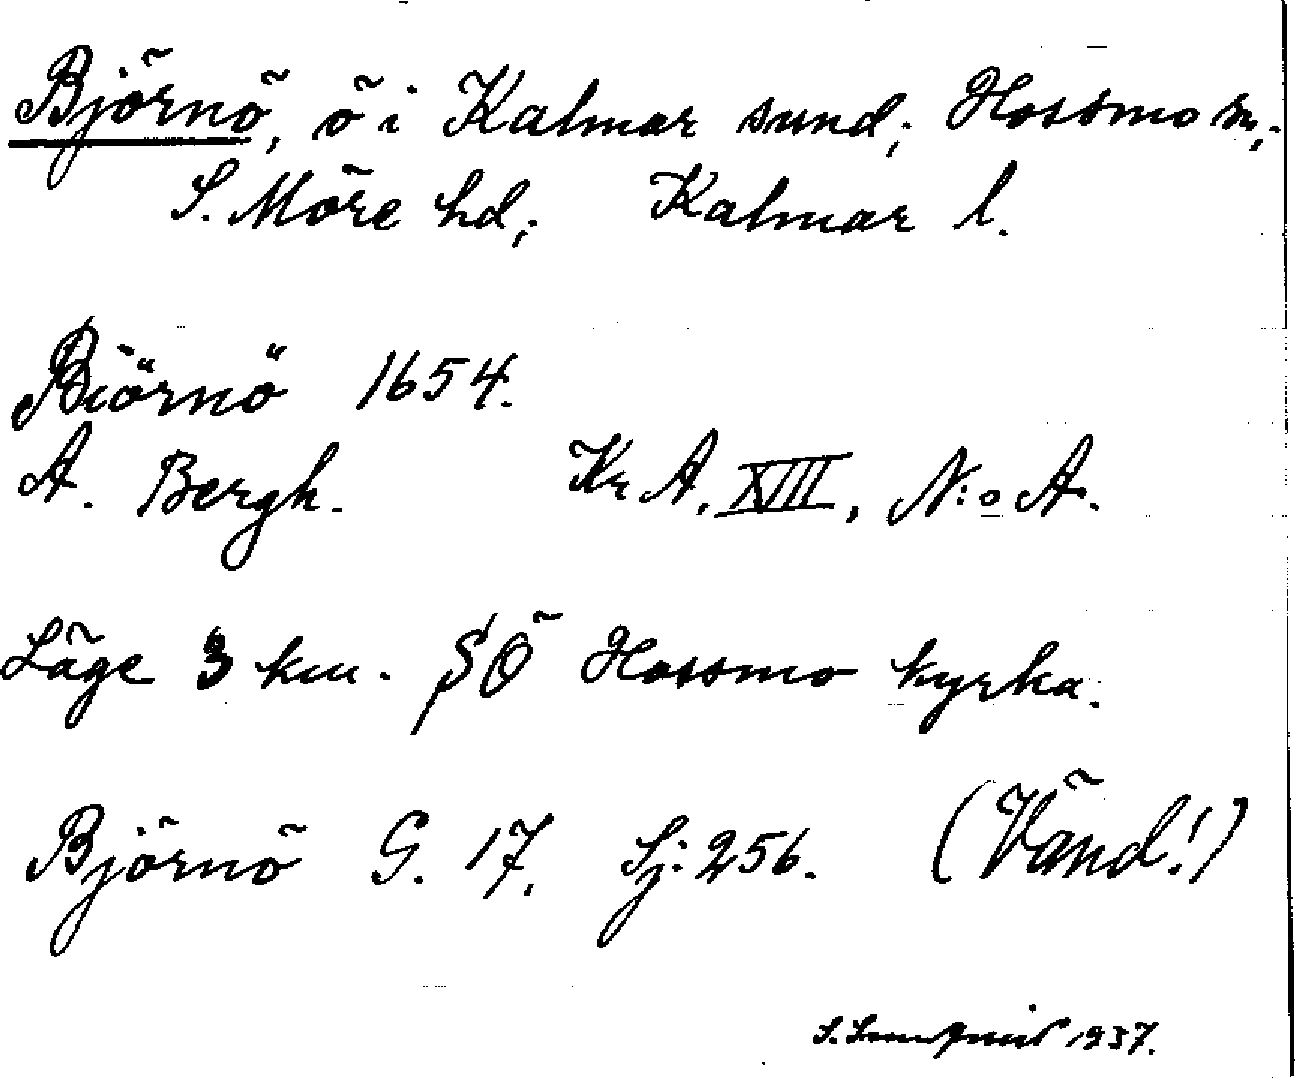 Björnö, ö i Kalmar sund; Hossmo sn;
S. Möre hd; Kalmar l.
Biörnö 1654.
A. Bergh. Kr A. XVIII, N:o A.
Läge 3 km. SÖ Hossmo kyrka.
Björnö G. 17. Sj: 256. (Vänd!)
S. 1937.